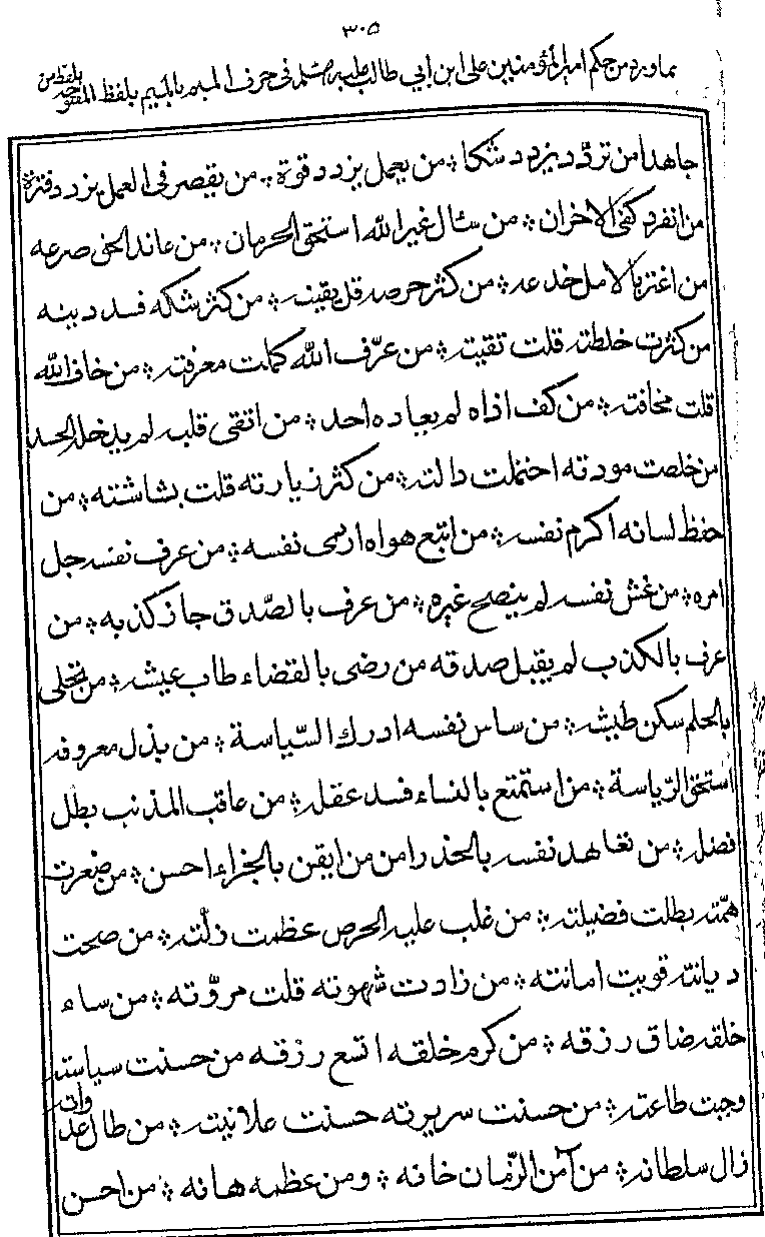 ٣٠٥
مما ورد من حكم امير المؤمنين على ابن ابي طالب عليه في حرف الميم بالميم بلفظ المفتوحة بلفظ من
جاهدا من تردّد يزدد شكا ؞ من يعمل يزدد قوة ؞ من يقصر فى العمل يزدد فترة
من انفرد كفى الاحزان ؞ من سئال غير الله استحق الحرمان ؞ من عاند الحق صرعه
من اغتر بالامل خدعه ؞ من كثر حرصه قل يقينه ؞ من كثر شكه فسد دينه
من كثرت خلطته قلت تقيته ؞ من عرّف الله كملت معرفته ؞ من خاف الله
قلت مخافته ؞ من كف اذاه لم يعاده احد ؞ من اتقى قلبه لم يدخله الحسد
من خلصت مودته احتملت دالته ؞ من كثر زيارته قلت بشاشته ؞ من
حفظ لسانه اكرم نفسه ؞ من اتبع هواه اردى نفسه ؞ من عرف نفسه جل
امره ؞ من غش نفسه لم ينصح غيره ؞ من عرف بالصّدق جاز كذبه ؞ من
عرف بالكذب لم يقبل صدقه من رضى بالقضاء طاب عيشه ؞ من تحلى
بالحلم سكن طيشه ؞ من ساس نفسه ادرك السّياسة ؞ من بذل معروفه
استحق الرّياسة ؞ من استمتع بالنساء فسد عقله ؞ من عاقب المذنب بطل
فضله ؞ من تعاهد نفسه بالحذر امن من ايقن بالجزاء احسن ؞ من صغرت
همّته بطلت فضيلته ؞ من غلب عليه الحرص عظمت ذلّته ؞ من صحت
ديانته قويت امانته ؞ من زادت شهوته قلت مروّته ؞ من ساء
خلقه ضاق رزقه ؞ من كرم خلقه اتسع رزقه من حسنت سياسته
وجبت طاعته ؞ من حسنت سريرته حسنت علانيته ؞ من طال عدوانه
زال سلطانه ؞ من آمن الزّمان خانه ؞ ومن عظمه هانه ؞ من احسن